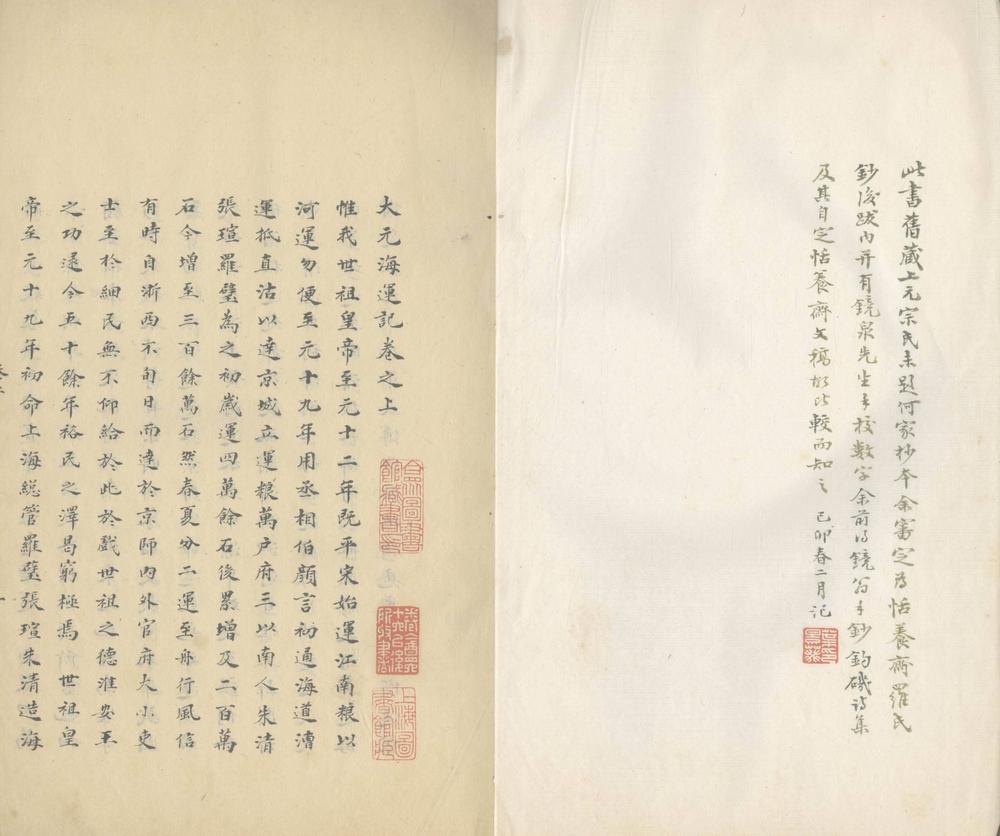 此書舊藏上元宗氏未題何家抄本余審定為恬養齋羅氏
鈔後跋內并有鏡泉先生手校數字余前得鏡翁手鈔釣磯詩集
及其自定恬養齋文稿故比較而知之 己卯春二月記
大元海運記卷之上
惟我世祖皇帝至元十二年既平宋始運江南粮以
河運勿便至元十九年用丞相伯顔言初通海道漕
運抵直沽以達京城立運粮萬户府三以南人朱清
張瑄羅璧為之初歲運四萬餘石後累增及二百萬
石今增至三百餘萬石然春夏分二運至舟行風信
有時自浙西不旬日而達於京師內外官府大小吏
士至於細民無不仰給於此於戲世祖之德淮安王
之功逮今五十餘年裕民之澤曷窮極焉世祖皇
帝至元十九年初命上海総管羅璧張瑄朱清造海
合眾圖書館藏書印
上海圖書館藏